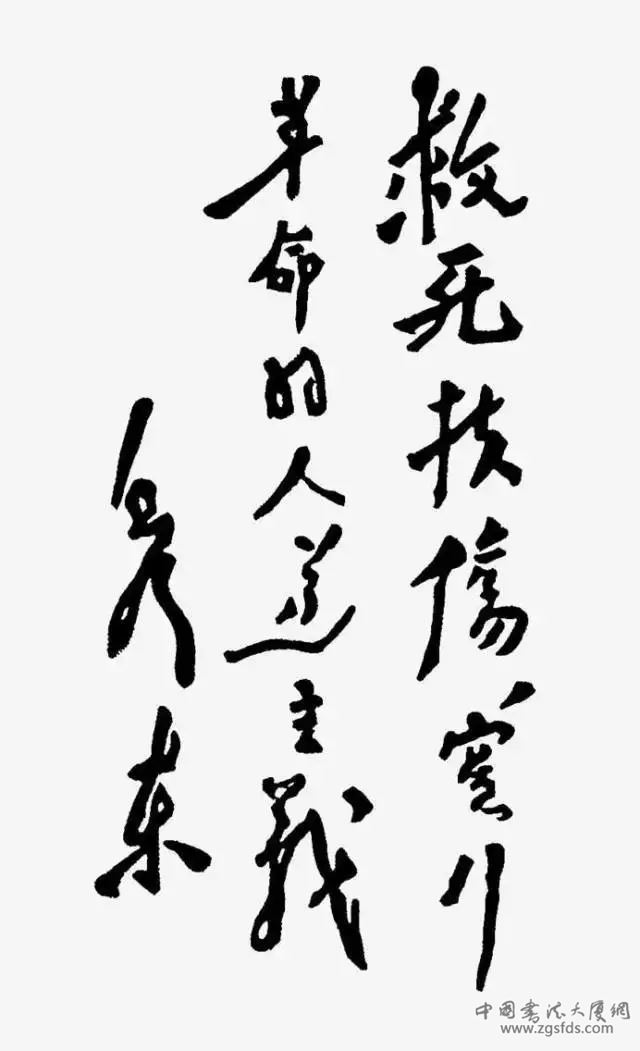 救死扶傷實行
革命的人道主義
毛澤东
中国书法大厦網
www.zgsfds.com